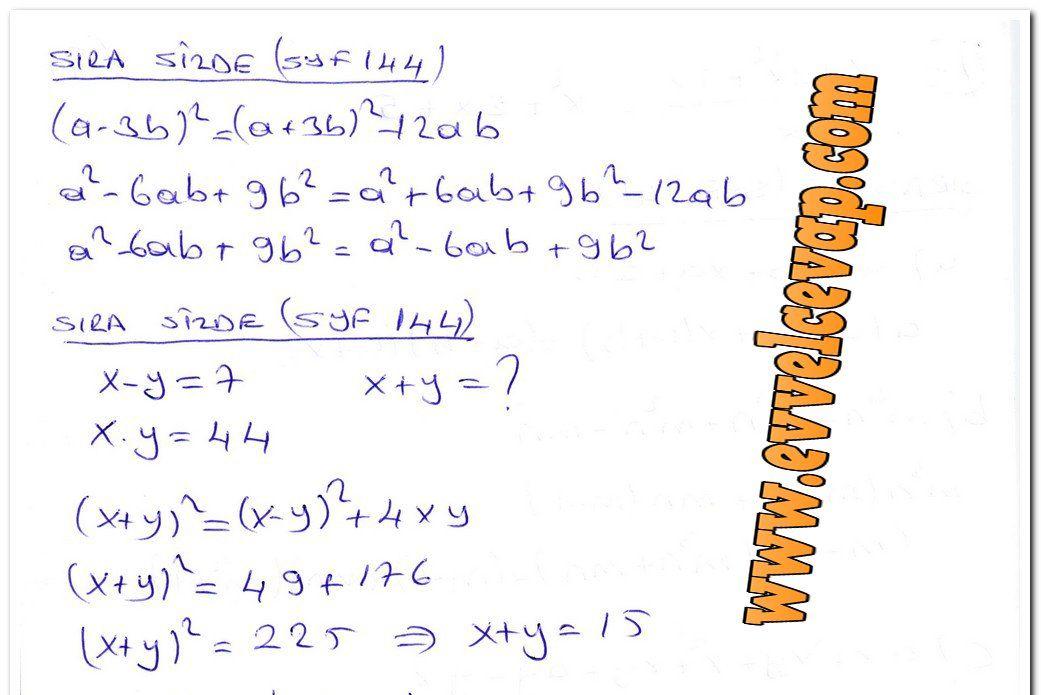 SIRA SİZDE (SYF 144)
(a-3b)²=(a+3b)²-12ab
a²-6ab+9b²=a²+6ab+9b²-12ab
a²-6ab+9b²=a²-6ab+9b²
SIRA SİZDE (SYF 144)
x-y=7 x+y=?
x.y=44
(x+y)²=(x-y)²+4xy
(x+y)²=49+176
(x+y)²=225 ⇒ x+y=15
www.evvelcevap.com